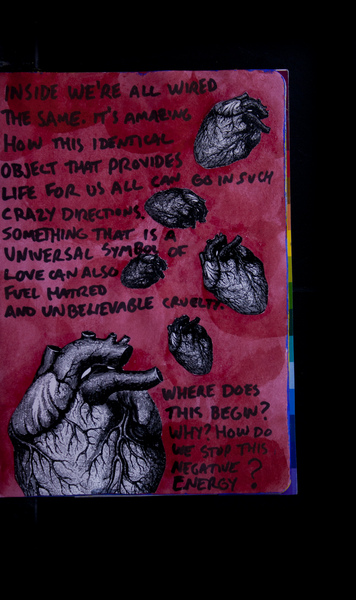 INSIDE WE'RE ALL WIRED
THE SAME. IT'S AMAZING
HOW THIS IDENTICAL
OBJECT THAT PROVIDES
LIFE FOR US ALL CAN GO IN SUCH
CRAZY DIRECTIONS.
SOMETHING THAT IS A
UNIVERSAL SYMBOL OF
LOVE CAN ALSO
FUEL HATRED
AND UNBELIEVABLE CRUELTY.
WHERE DOES
THIS BEGIN?
WHY? HOW DO
WE STOP THIS
NEGATIVE
ENERGY?